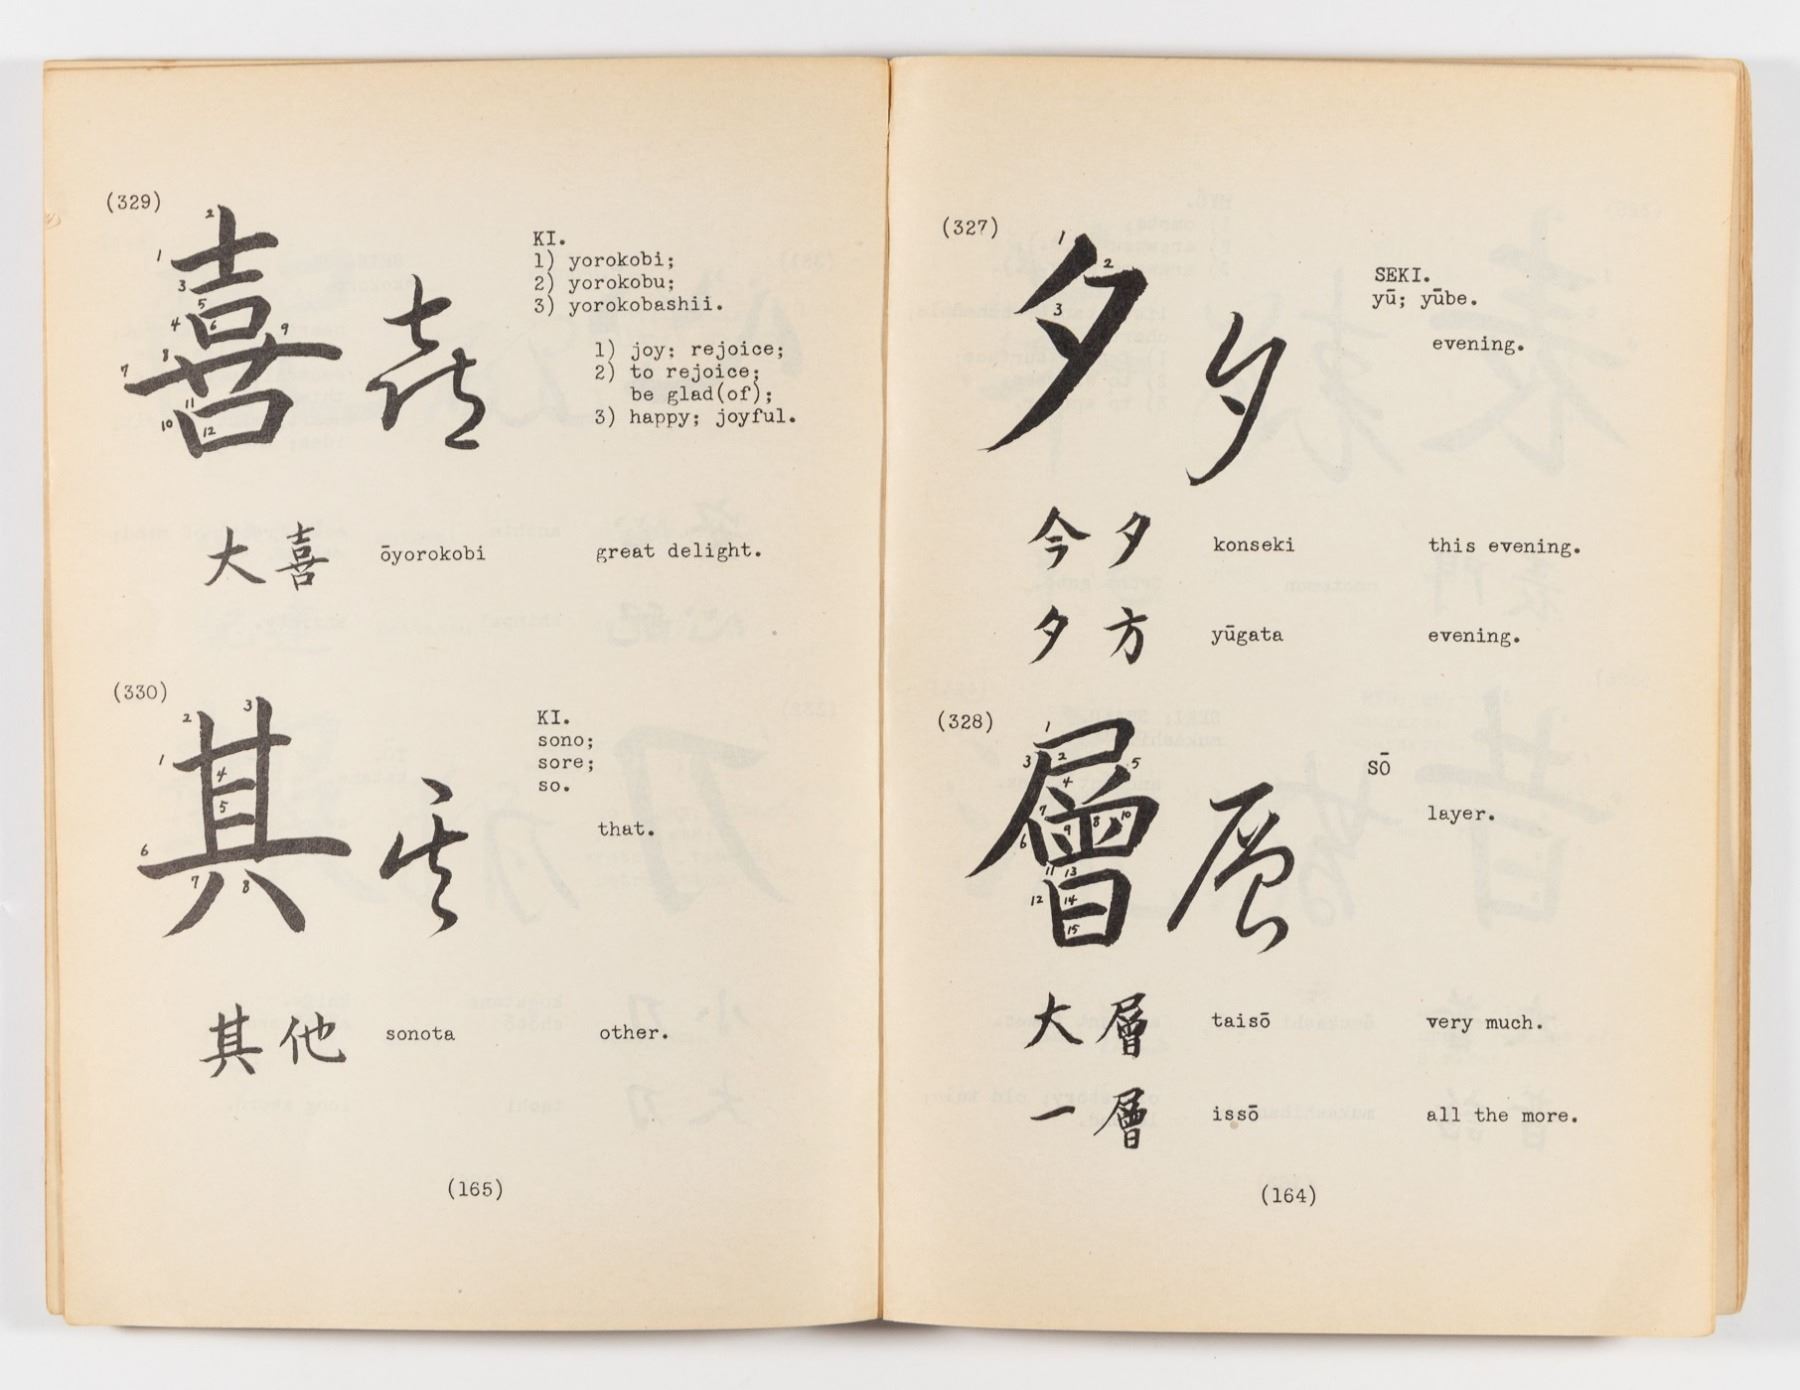 (327)
夕 夕
SEKI.
yū; yūbe.
evening.
今夕 konseki this evening.
夕方 yūgata evening.
(328)
層 層
SŌ
layer.
大層 taisō very much.
一層 issō all the more.
(164)
(329)
喜 喜
KI.
1) yorokobi;
2) yorokobu;
3) yorokobashii.
1) joy; rejoice;
2) to rejoice;
be glad(of);
3) happy; joyful.
大喜 ōyorokobi great delight.
(330)
其 其
KI.
sono;
sore;
so.
that.
其他 sonota other.
(165)